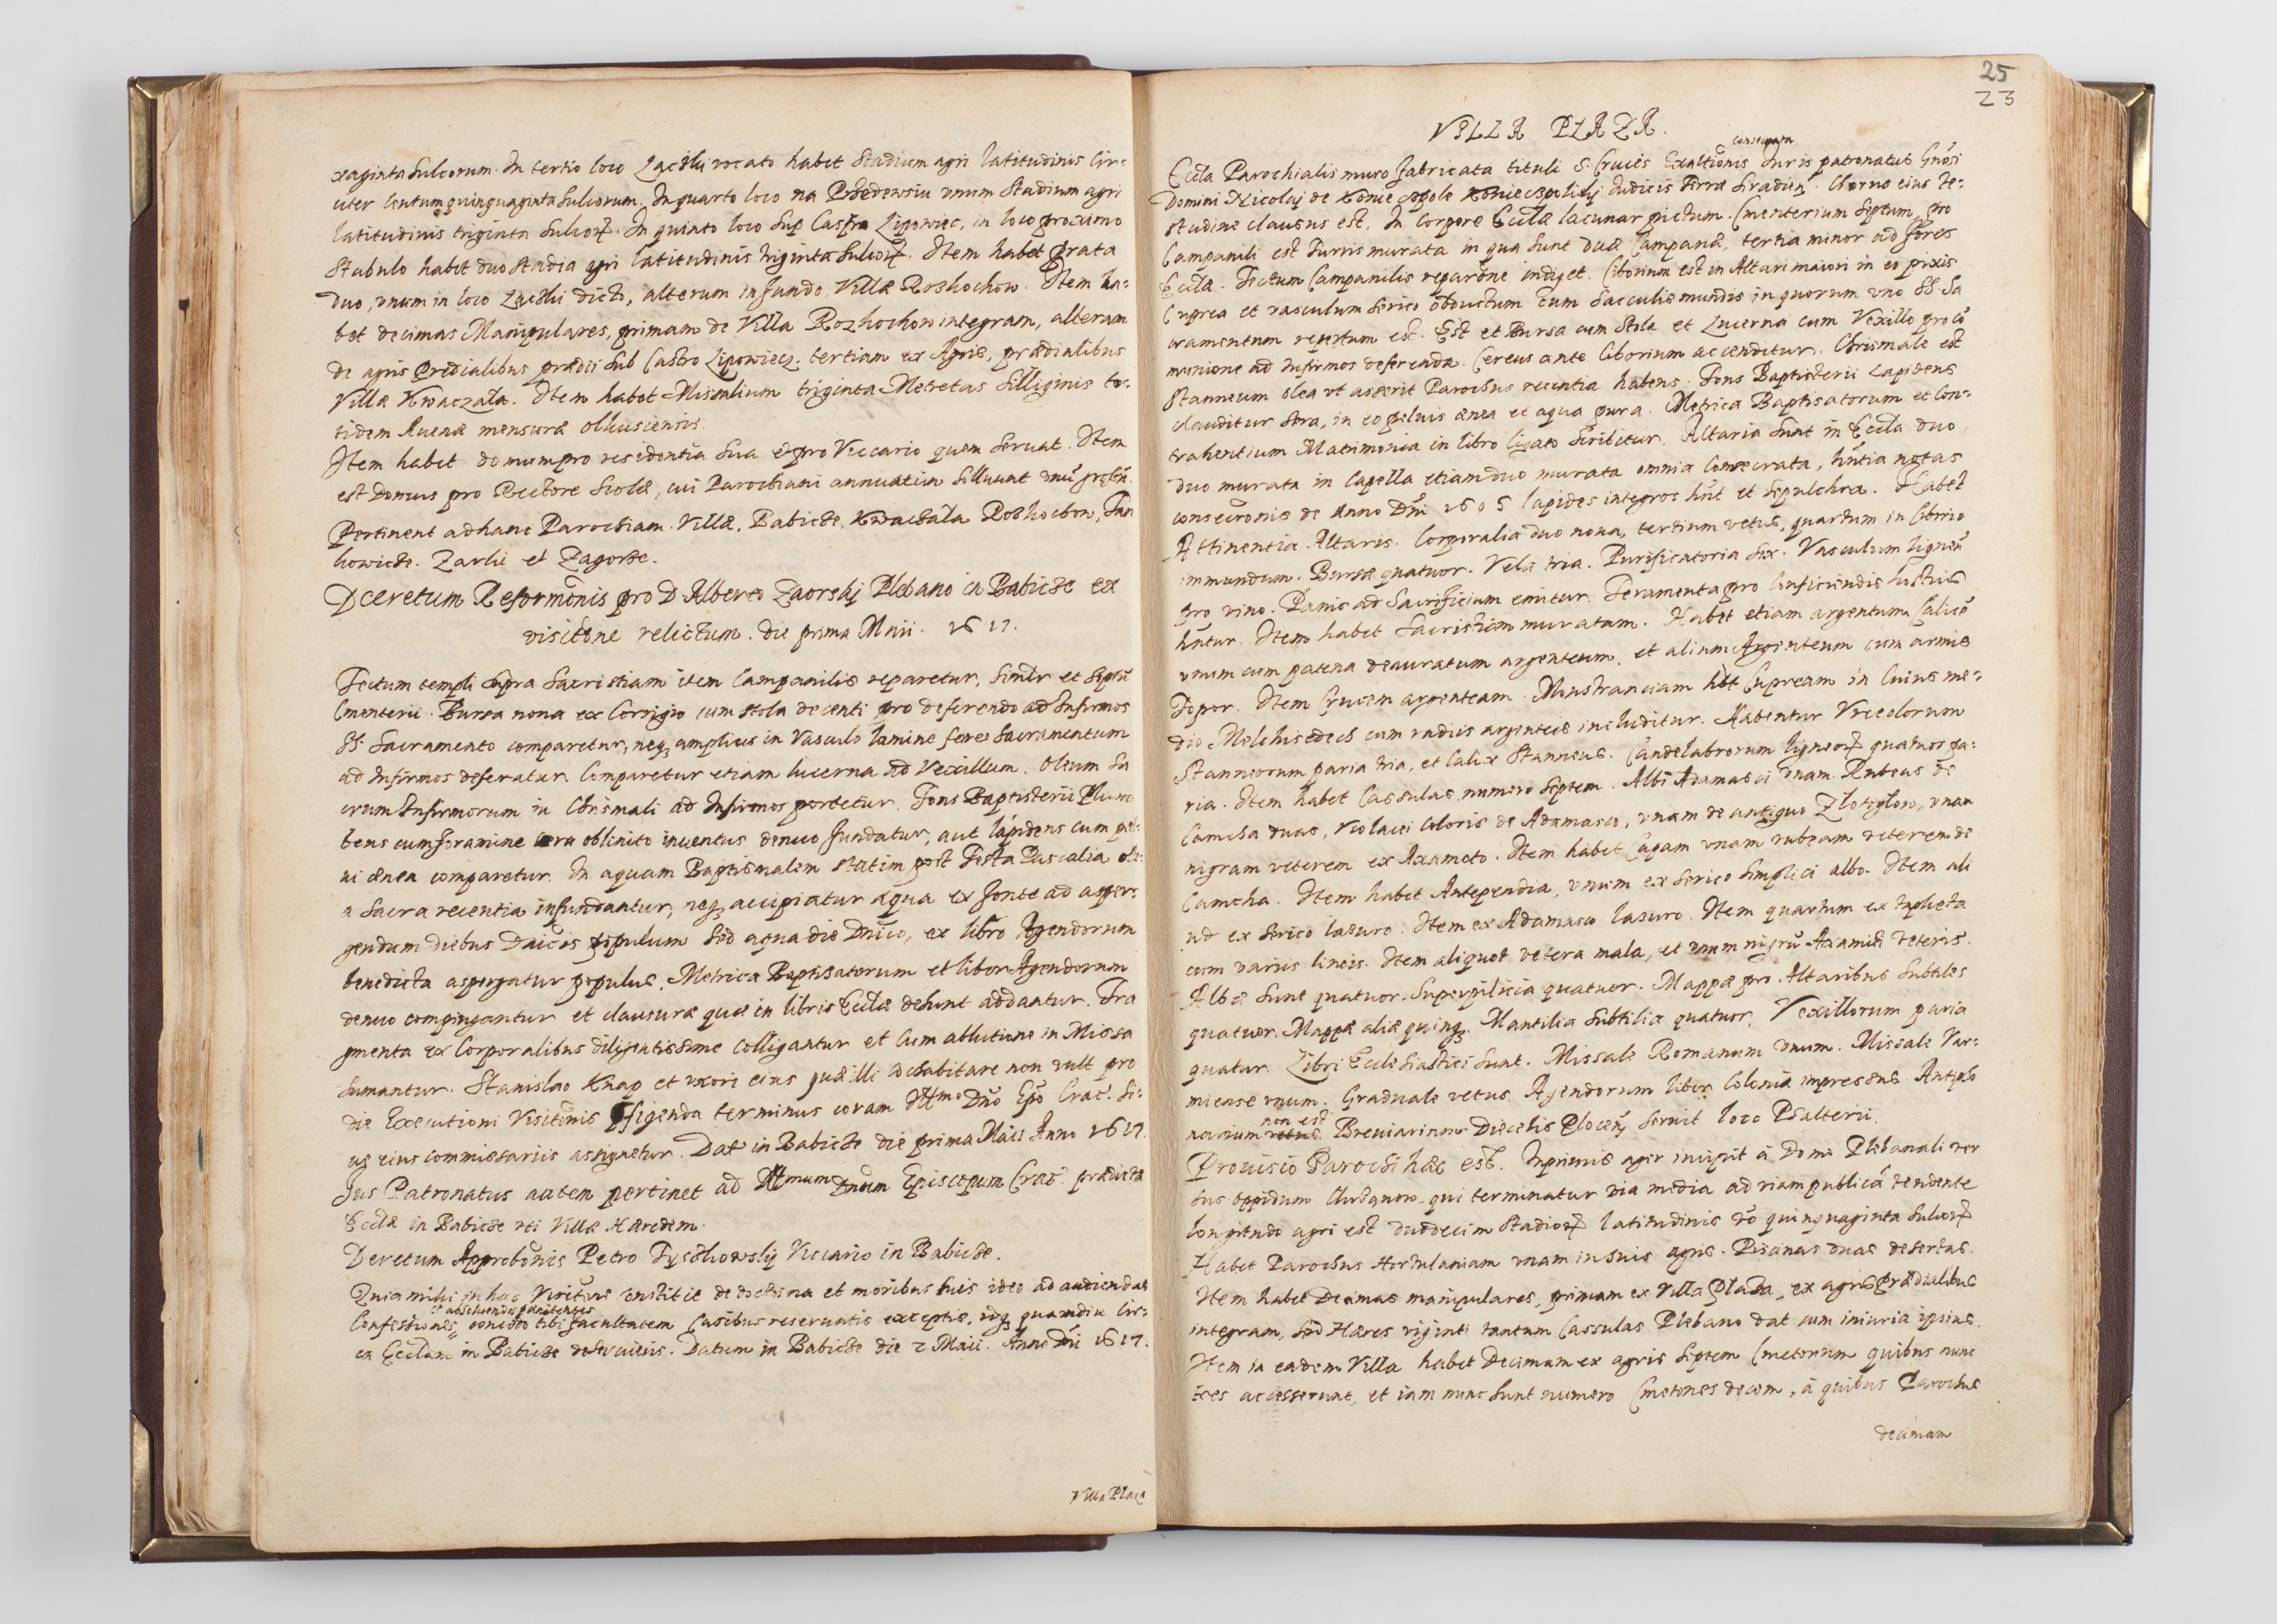 xaginta Sulcorum. In tertio loco Laczki vocato habet Stadium agri latitudinis Cir-
citer Centum quinquaginta Sulcorum. In quarto loco na Przedewsiu vnum Stadium agri
latitudinis triginta Sulcorꝝ. In quinto loco Sup Castra Lipowiec, in loco proximo
Stabulo habet duo Stadia agri latitudinis triginta Sulcorꝝ. Item habet prata
duo, vnum in loco Laczki dicto, alterum in fundo Villæ Rozkochow. Item ha-
bet decimas Manipulares, primam de Villa Rozkochow integram, alteram
de agris Predialibus prædii Sub Castro Lipowiecz. tertiam ex Agris, prædialibus
Villæ Kwaczała. Item habet Missalium triginta Metretas Silliginis to-
tidem Auenæ mensuræ Olkusiensis.
Item habet domum pro residentia Sua et pro Viccario quem Seruat. Item
est Domus pro Rectore Scolæ, cui Parochiani annuatim Soluunt
Pertinent ad hanc Parochiam. Villæ, Babicze, Kwaczala Rozkochow, Jan
kowicze. Zarki et Zagorze.
Dceretum Reformõnis pro D. Alberto Zaorskÿ Plebano in Babicze ex
visitõne relictum. die prima Maii. 1617.
Tectum templi supra Sacristiam item Campanilis reparetur, Simlr et Septũ
Cmenterii. Bursa noua ex Corrigio cum stola decenti pro deferendo ad Infirmos
SS. Sacramento comparetur, neqꝫ amplius in Vasculo lamine ferreo Sacramentum
ad Infirmos deferatur. Comparetur etiam lucerna ad Vexillum. Oleum Sa
crum Infirmorum in Chrismali ad Infirmos portetur. Fons Baptisterii Plum
beus cum foramine cera oblinito inuentus denuo fundatur, aut lapideus cum pel-
ui ænea comparetur. In aquam Baptismalem statim post Festa Pascalia ole-
a Sacra recentia infundantur, neqꝫ accipiatur aqua ex fonte ad asper-
gendum diebus Dnicis populum Sed aqua die Dnico, ex libro Agendorum
benedicta aspergatur populus. Metrica Baptisatorum et liber Agendorum
denuo compingantur et clausuræ quæ in libris Ecclæ desunt addantur. Fra
gmenta ex Corporalibus diligentissime Colligantur et Cum ablutione in Missa
Sumantur. Stanislao Knap et vxori eius quæ illi cohabitare non vult pro
die Executioni Visitõnis figenda terminus coram Illmo Dño Epõ Crac. Si-
ue eius commissariis assignetur. Dat in Babicze die prima Maii Anno 1617.
Jus Patronatus autem pertinet ad Illmum Dnum Episcopum Crac. prædictæ
Ecclæ in Babicze uti Villæ Hæredem.
Deretum Approbõnis Petro Tyszkowskÿ Viccario in Babicze.
Quia mihi in hac Visitõne constitit de doctrina et moribus tuis ideo ad audiendas
et absoluendos pænitentes
Confessiones concedo tibi facultatem Casibus reseruatis exceptis, idqꝫ quamdiu Cir-
ca Ecclam in Babicze deseruieris. Datum in Babicze die 2 Maii. Anno Dni 1617.
Villa Plaza
25
23
VILLA PLAZA.
consecrata
Eccla Parochialis muro fabricata tituli S. Crucis Exaltiõnis Iuris patronatus Gnosi
Domini Nicolaj de Koniecpole Koniecpolskÿ Iudicis Terræ Siradieñ. Chorus eius te-
studine clausus est. In Corpore Ecclæ lacunar pictum. Cmenterium Septum, pro
Campanili est Turris murata in qua Sunt duæ Campanæ, tertia minor ad fores
Ecclæ. Tectum Campanilis reparõne indiget. Ciborium est in Altari maiori in eo pixis
Cuprea et vasculum Serico obductum cum Sacculis mundis in quorum vno SS. Sa
cramentum repertum est. Est et Bursa cum Stola et Lucerna cum Vexillo pro cõ
munione ad Infirmos deferenda. Cereus ante Ciborium accenditur. Chrismale est
Stanneum olea vt asserit Parochus recentia habens. Fons Baptisterii Lapideus
clauditur Sera, in eo peluis ænea et aqua pura. Metrica Baptisatorum et Con-
trahentium Matrimonia in libro ligato Scribitur. Altaria Sunt in Eccla duo
duo murata in Capella etiam duo murata omnia Consecrata, hñtia notas
consecrõnis de Anno Dñi 1605 lapides integros hñt et Sepulchra. Habet
Attinentia Altaris. Corporalia duo noua, tertium vetus, quartum in Ciborio
immundum. Bursæ quatuor. Vela tria. Purificatoria Sex. Vasculum ligneũ
pro vino. Panis ad Sacrificium emitur. Feramenta pro Conficiendis hostiis
hñtur. Item habet Sacristiam muratam. Habet etiam argenteum Calicẽ
vnum cum patena deauratum argenteum. et alium Argenteum cum armis
Topor. Item Crucem argenteam. Monstranciam hẽt Cupream in Cuius me-
dio Melchisedech cum radiis argenteis includitur. Habentur Vrceolorum
Stanneorum paria tria, et Calix Stanneus. Candelabrorum ligneorꝝ quatuor pa-
ria. Item habet Cassulas numero Septem. Albi Adamasci vnam. Rubeas de
Camcha duas, violacei Coloris de Adamasco, vnam de antiquo Zlotoglow, vnam
nigram veterem ex Axameto. Item habet Capam vnam rubeam veterem de
Camcha. Item habet Antependia, vnum ex Serico Simplici albo. Item ali
ud ex Serico lazuro. Item ex Adamasco lasuro. Item quartum ex tapheta
cum variis lineis. Item aliquot vetera mala, et vnum nigrũ Axamiti veteris.
Albæ Sunt quatuor. Superpilicia quatuor. Mappæ pro Altaribus Subtiles
quatuor. Mappæ aliæ quinqꝫ. Mantilia Subtilia quatuor. Vexillorum paria
quatur. Libri Ecclesiastici Sunt. Missale Romanum vnum. Missale Var-
miense vnum. Graduale vetus. Agendorum liber Coloniæ impressus. Antipho
non est
narium vetus. Breviarium Diecesis Plocenꝫ Seruit loco Psalterii.
Prouisio Parochi hæc est. Inprimis ager incipit à Domo Plebanali ver
sus oppidum Chrzanow. qui terminatur via media ad viam publicã tendente
longitudo agri est duodecim Stadiorꝝ latitudinis võ quinquaginta Sulcorꝝ
Habet Parochus Hortulaniam vnam in Suis agris. Piscinas duas desertas.
Item habet Decimas manipulares, primam ex Villa Plaza, ex agris Prædialibus
integram, Sed Hæres viginti tantum Cassulas Plebano dat cum iniuria ipsius.
Item in eadem Villa habet Decimam ex agris Septem Cmetonum quibus nunc
tres accesserunt, et iam nunc Sunt numero Cmetones decem, à quibus Parochus
decimam